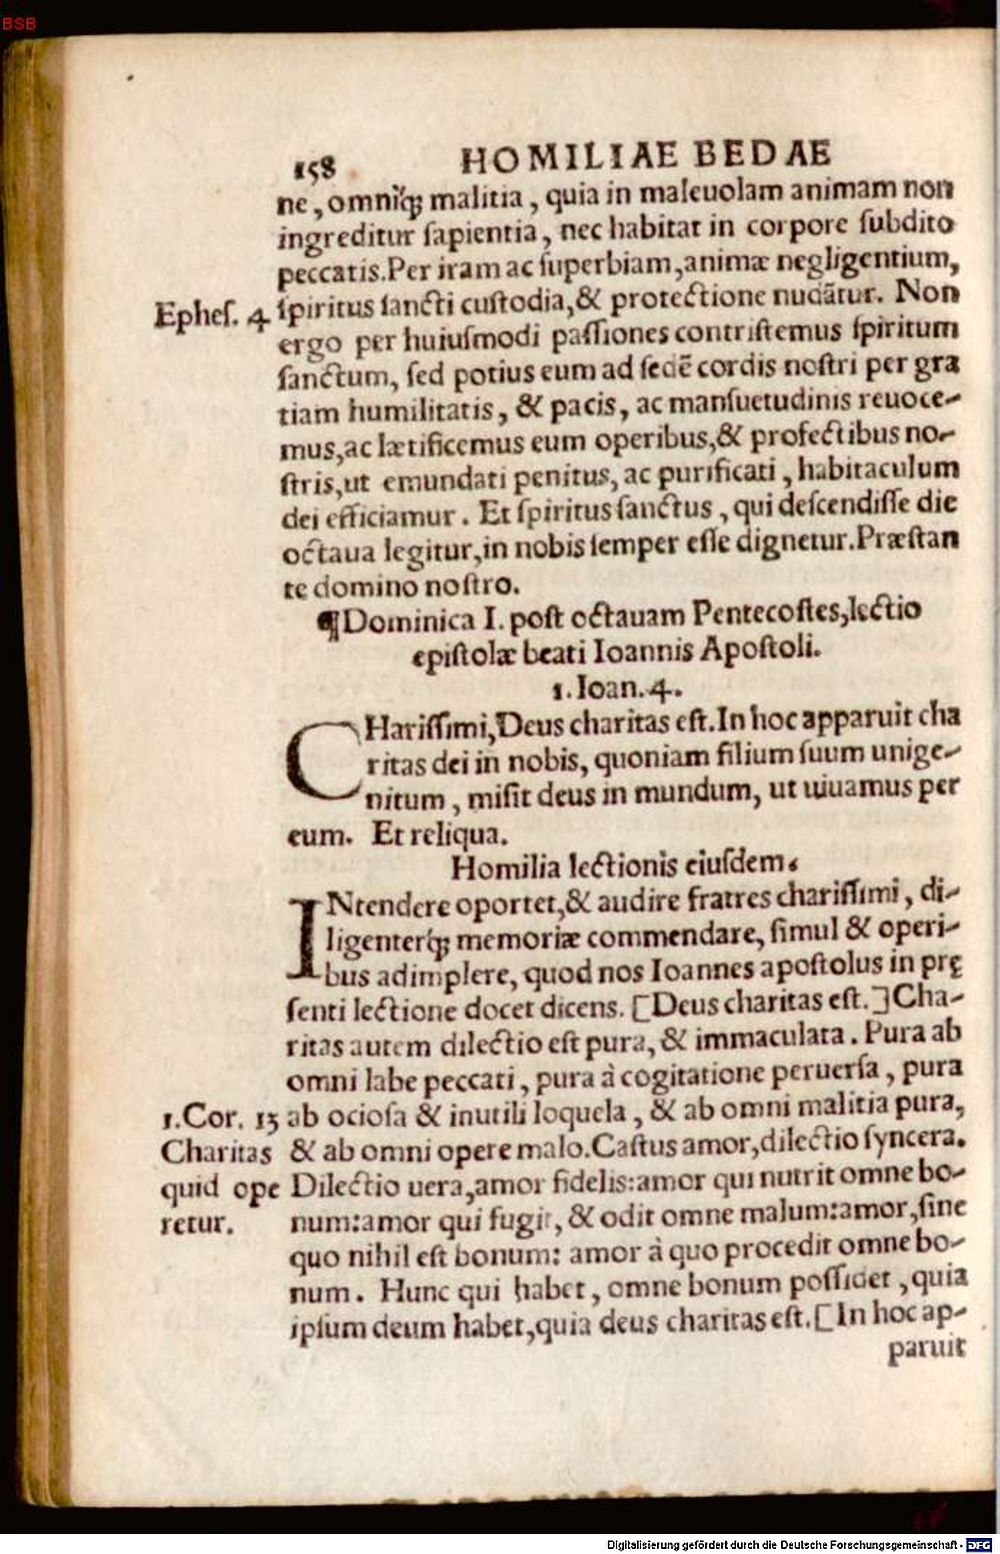 BSB
158 HOMILIAE BEDAE
ne, omniq́ꝫ malitia, quia in maleuolam animam non
ingreditur ſapientia, nec habitat in corpore ſubdito
peccatis. Per iram ac ſuperbiam, animæ negligentium,
Epheſ. 4 ſpiritus ſancti cuſtodia, & protectione nudãtur. Non
ergo per huiuſmodi paſſiones contriſtemus ſpiritum
ſanctum, ſed potius eum ad ſedẽ cordis noſtri per gra
tiam humilitatis, & pacis, ac manſuetudinis reuoce-
mus, ac lætificemus eum operibus, & profectibus no-
ſtris, ut emundati penitus, ac purificati, habitaculum
dei efficiamur. Et ſpiritus ſanctus, qui deſcendiſſe die
octaua legitur, in nobis ſemper eſſe dignetur. Præſtan
te domino noſtro.
¶Dominica I. poſt octauam Pentecoſtes, lectio
epiſtolæ beati Ioannis Apoſtoli.
1. Ioan. 4.
CHariſſimi, Deus charitas eſt. In hoc apparuit cha
ritas dei in nobis, quoniam filium ſuum unige-
nitum, miſit deus in mundum, ut uiuamus per
eum. Et reliqua.
Homilia lectionis eiuſdem.
INtendere oportet, & audire fratres chariſſimi, di-
ligenterq́ꝫ memoriæ commendare, ſimul & operi-
bus adimplere, quod nos Ioannes apoſtolus in prę
ſenti lectione docet dicens. [Deus charitas eſt.] Cha-
ritas autem dilectio eſt pura, & immaculata. Pura ab
omni labe peccati, pura à cogitatione peruerſa, pura
1. Cor. 13 ab ocioſa & inutili loquela, & ab omni malitia pura,
Charitas & ab omni opere malo. Caſtus amor, dilectio ſyncera.
quid ope Dilectio uera, amor fidelis: amor qui nutrit omne bo-
retur. num: amor qui fugit, & odit omne malum: amor, ſine
quo nihil eſt bonum: amor à quo procedit omne bo-
num. Hunc qui habet, omne bonum poſſidet, quia
ipſum deum habet, quia deus charitas eſt. [In hoc ap-
paruit
Digitalisierung gefördert durch die Deutsche Forschungsgemeinschaft - DFG